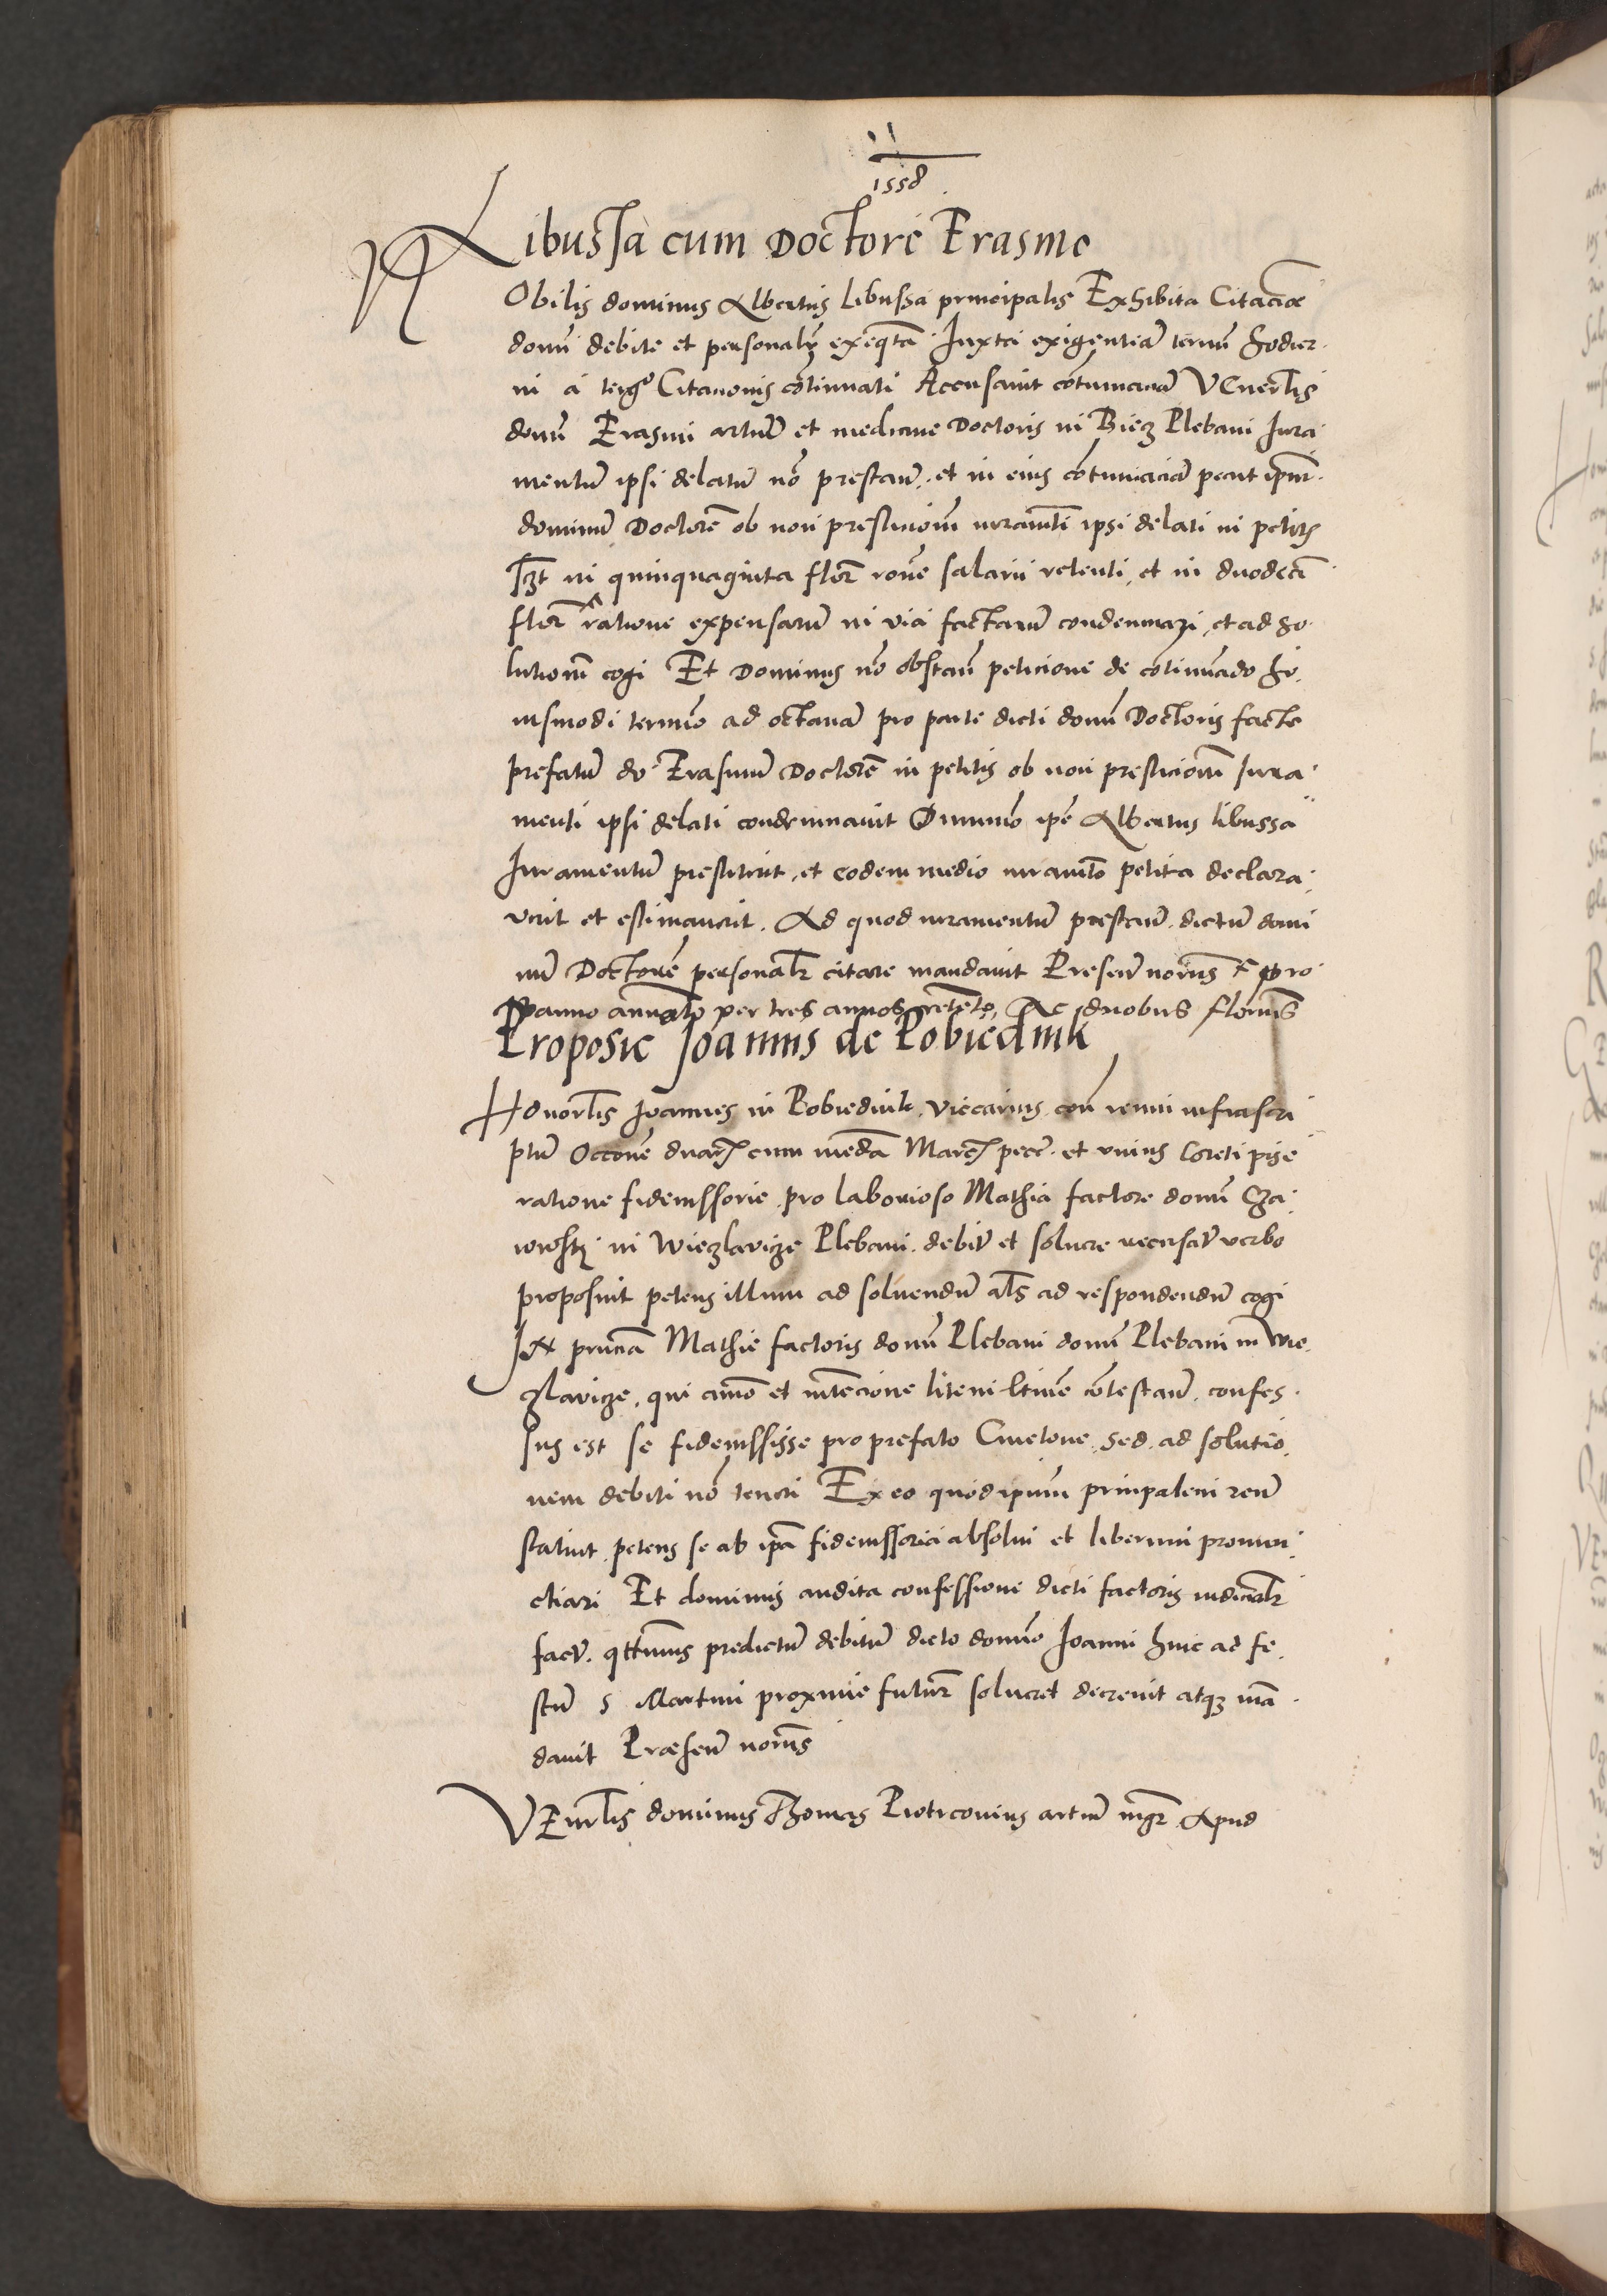 1558
Libussa cum Doctore Erasmo
NObilis dominus Albertus Libussa principalis Exhibita Citacioe
domi debite et personalr exeqta Iuxta exigentia termi hodier
ni a tergo Citationis cotinuati Accusauit cotumacia VEnerlis
domi Erasmi artiu et medicine Doctoris in Biecz Plebani Iura
mentu ipsi delatu no prestan. et in eius cotumacia petit ipm
dominu Doctore ob non presticiom iuramti ipsi delati in petitis
sczt in quinquaginta flor roe salarii retenti, et in duodeci
flor ratione expensaru in via factaru condemnari, et ad so
lutiom cogi Et Dominus no obstan peticione de cotinuado ho
iusmodi termino ad octaua pro parte dicti domi Doctoris facte
prefatu do Erasmu Doctore in petitis ob non presticiom Iura
menti ipsi delati condemnauit Dummo ipe Albertus libussa
Iuramentu prestiterit, et eodem medio iuramto petita declara
uerit et estimauerit. Ad quod iuramentu prestan. dictu domi
nu Doctore personalr citare mandauit Presen noriis pro
anno annato per tres annos retento, Ac duobus florenis
Proposic Joannis de Pobiednik
Honorlis Ioannes in Pobiednik Viccarius con infrascri
ptu Occone duar cum media Marcar pecc. et unius Coreti pise
ratione fideiussorie pro laborioso Mathia factore domi Cza
in Wieczlavicze Plebani debit et soluere recusat verbo
proposuit petens illum ad soluendu als ad respondendu cogi
In pncia Mathie factoris domi Plebani domi Plebani in Wie
czlavicze, qui aimo et intencione litem ltime cotestan. confes
sus est se fideiussisse pro prefato Cmetone, sed ad solutio
nem debiti no teneri Ex eo quod ipsum prinpalem reu
statuit petens se ab ipa fideiussoria absolui et liberum pronun
ctiari Et dominus audita confessione dicti factoris iudicialr
fact. qtenus predictu debitu dicto domino Ioanni hinc ad fe
stu S Martini proxime futur solueret decreuit atqz ma
dauit Præsen noriis
VEnerlis dominus Thomas Piotrcouius artiu mgr Apud